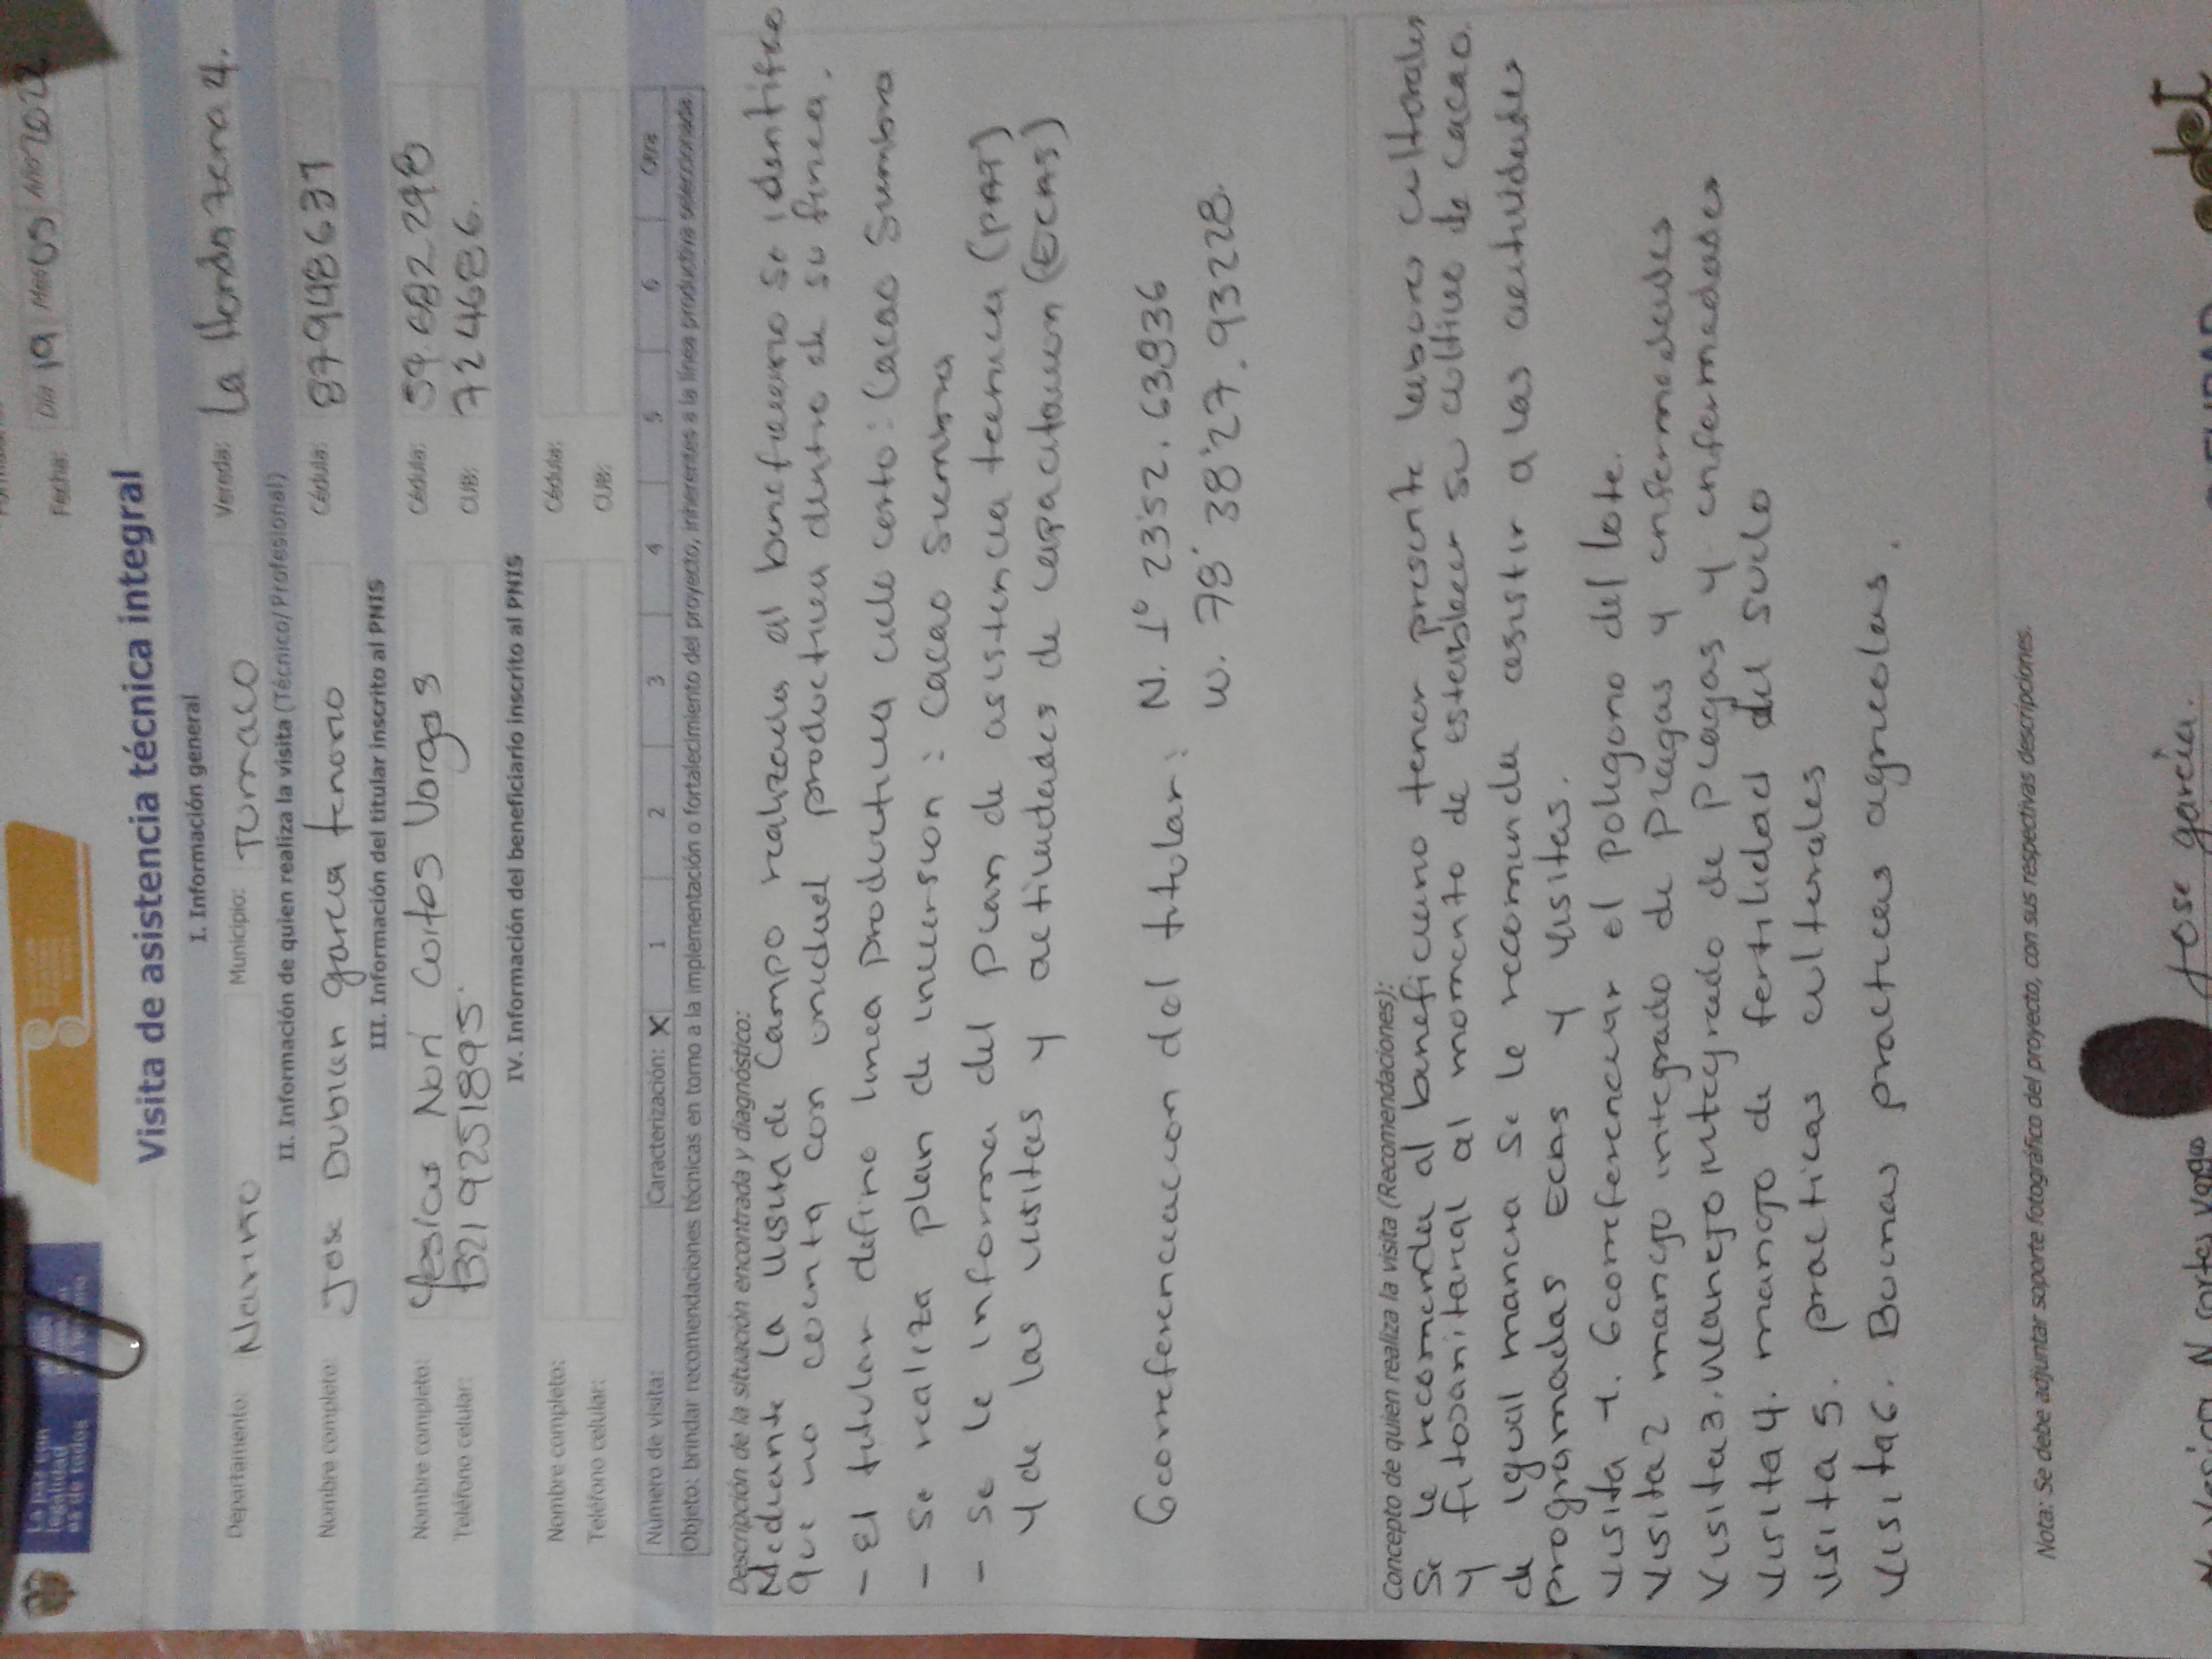 La paz con
legalidad
es de todos
Fecha: Día 19 Mes 05 Año 2022
Visita de asistencia técnica integral
I. Información general
Departamento: Narino Municipio: Tumaco Vereda: La Honda zona 4.
II. Información de quien realiza la visita (Técnico/Profesional)
Nombre completo: Jose Dubian garcia tenorio Cédula: 87948631
III. Información del titular inscrito al PNIS
Nombre completo: Yesica Nori Cortes Vargas Cédula: 59.682298
Teléfono celular: 3219251895. CUB: 724686.
IV. Información del beneficiario inscrito al PNIS
Nombre completo: Cédula:
Teléfono celular: CUB:
Número de visita: Caracterización: X 1 2 3 4 5 6 Otra
Objeto: brindar recomendaciones técnicas en torno a la implementación o fortalecimiento del proyecto, inherentes a la línea productiva seleccionada.
Descripción de la situación encontrada y diagnóstico:
Mediante la visita de campo realizada al beneficiario se identifico
que no cuenta con unidad productiva dentro de su finca.
- El titular define linea productiva ciclo corto: Cacao Sumbra
- Se realiza plan de inversion: Cacao Siembra
- Se le informa del plan de asistencia tecnica (PAT)
y de las visitas y actividades de capacitacion (ECAS)
Georreferenciacion del titular: N. 1° 23'52.63836
W. 78° 38'27.93228.
Concepto de quien realiza la visita (Recomendaciones):
Se le recomienda al beneficiario tener presente labores culturales
y fitosanitarial al momento de establecer su cultivo de cacao.
de igual manera se le recomienda asistir a las actividades
programadas ECAS y visitas.
visita 1. Georreferenciar el poligono del lote.
visita 2 manejo integrado de plagas y enfermedades
Visita 3. Manejo integrado de plagas y enfermedades
visita 4. manejo de fertilidad del suelo
visita 5. practicas culturales
visita 6. Buenas practicas agricolas.
Nota: Se debe adjuntar soporte fotográfico del proyecto, con sus respectivas descripciones.
Yesica N cortes Vargas Jose garcia.